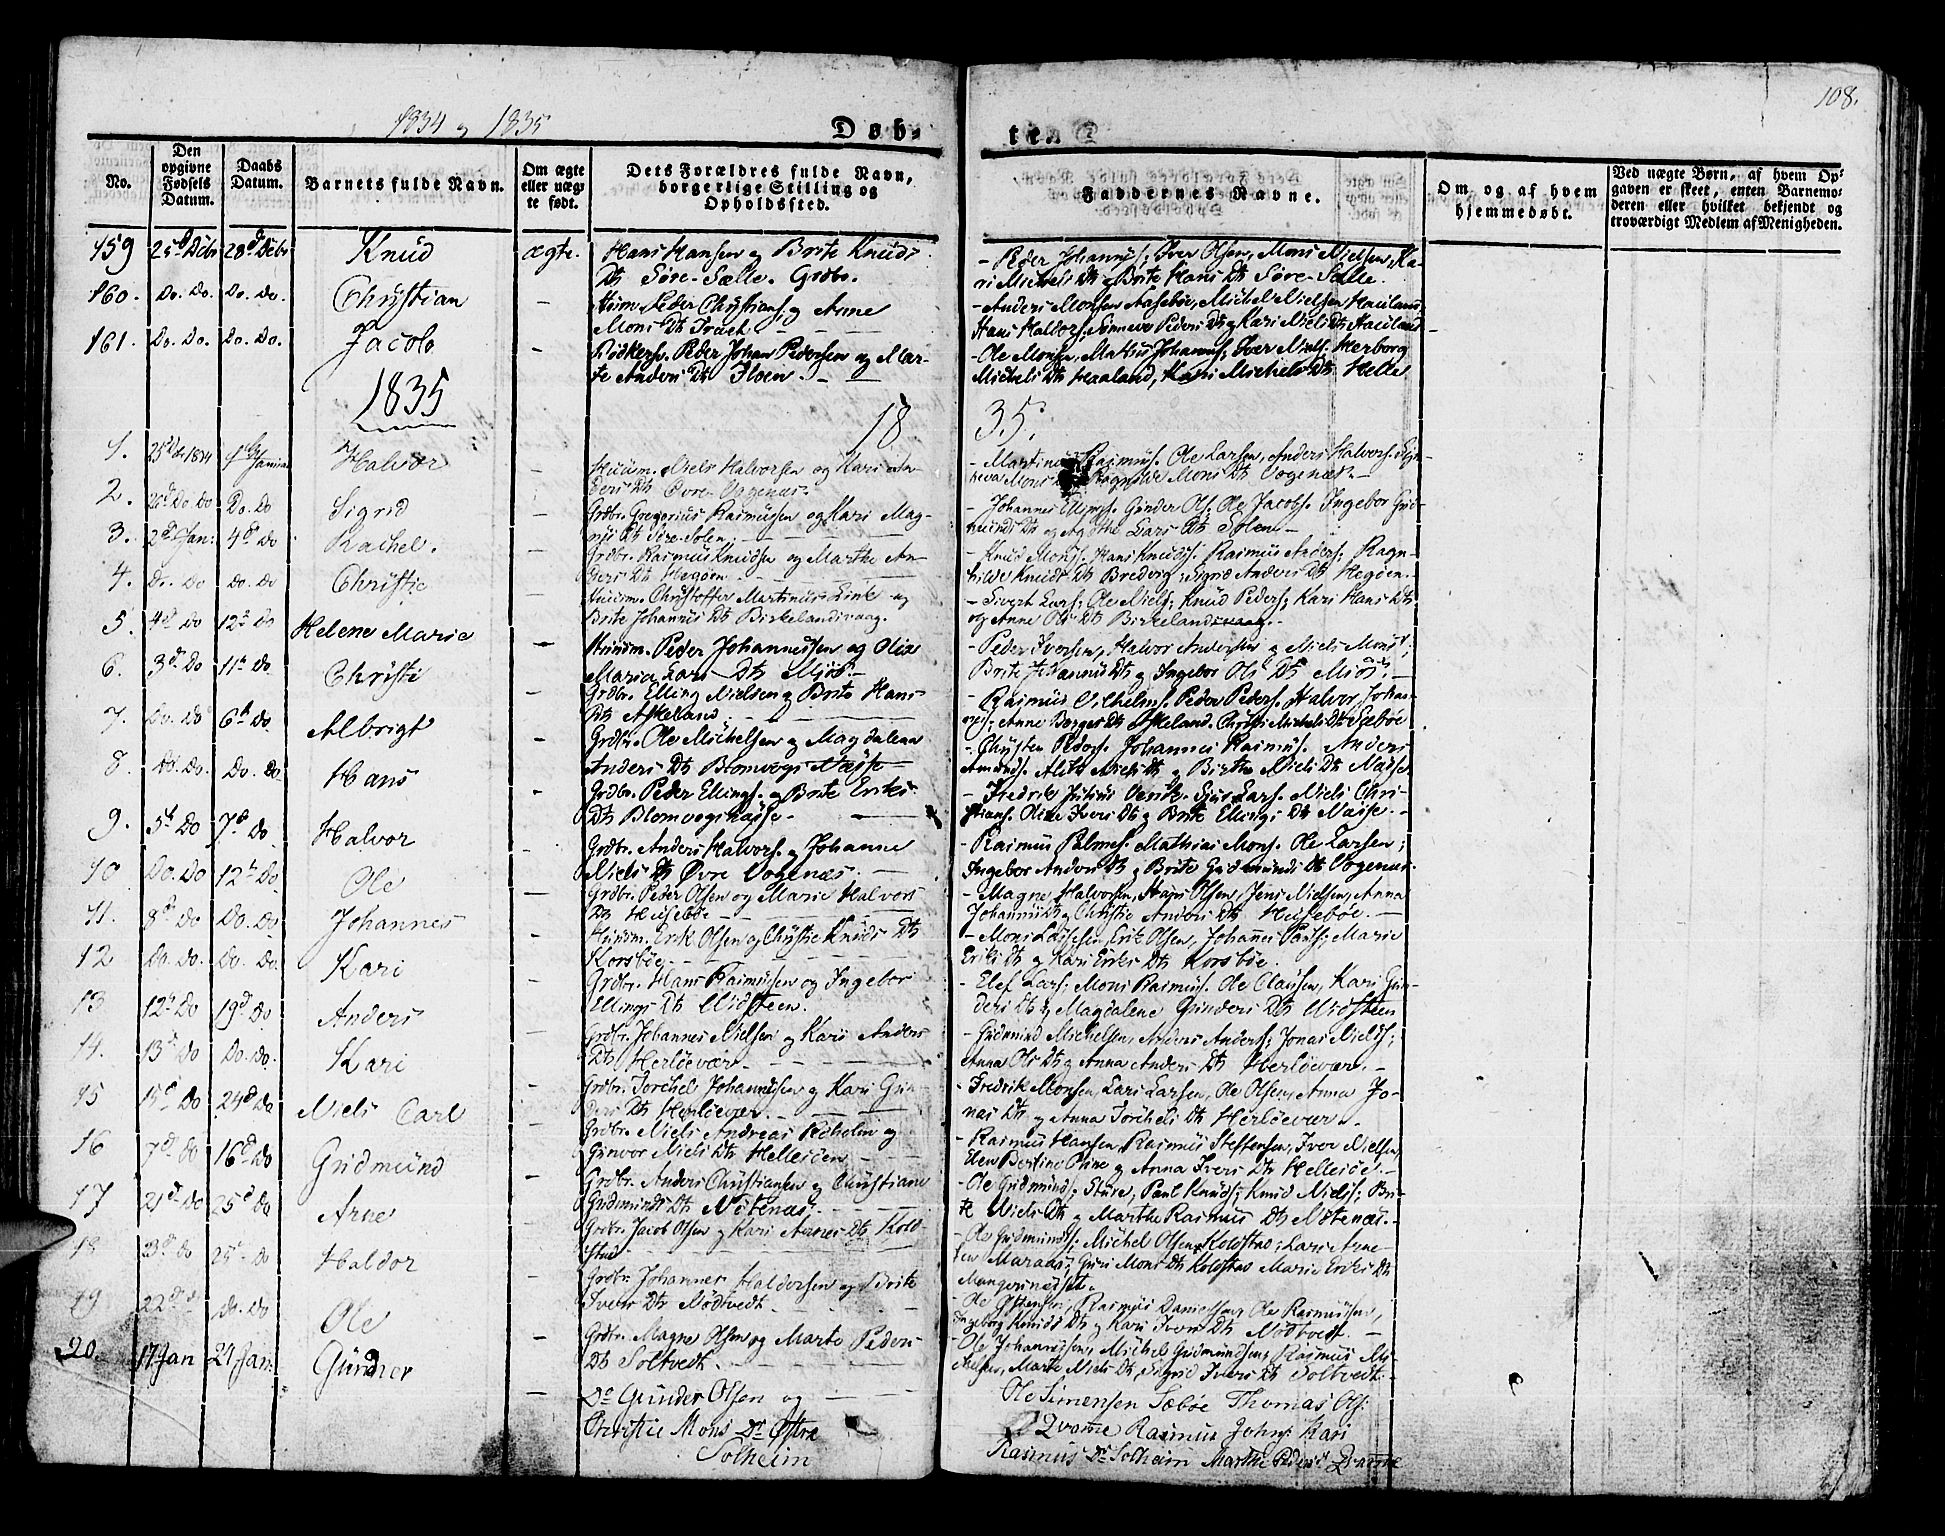 1834 og 1835
Døb-
te.
108.
No.
Den opgivne Fødsels Datum.
Daabs Datum.
Barnets fulde Navn.
Om ægte eller uægte født.
Dets Forældres fulde Navn, borgerlige Stilling og Opholdssted.
Faddernes Navne.
Om og af hvem hjemmedøbt.
Ved uægte Børn, af hvem Opgaven er skeet, enten Barnemoderen eller hvilket bekjendt og troværdigt Medlem af Menigheden.
159 25d Dcbr 28d Dcbr Knud ægte. Hans Hansen og Brite Knuds
Dtr Søre-Sælle. Grdbr.
- Peder Johannes; Iver Olsen, Mons Nielsen, Ka-
ri Michels Dtr og Brite Hans Dtr Søre-Sælle.
160. Do. Do. Do. Do. Christian - Huusm. Peder Christians. og Anne
Mons Dtr
- Anders Monsen Aasebøe, Michel Nielsen Hauland,
Hans Haldors. Sinneve Peders Dtr og Kari Niels Dtr Hauland
161. Do. Do. Do. Do. Jacob - Bødkers. Peder Johan Pedersen og Mar-
te Anders Dtr Floen.
- Ole Monsen, Mathis Johannes; Iver Niels. Herborg
Michels Dtr Haaland, Kari Michels Dtr Helle
1835
18
35.
1. 25d Dbr 1834 1ste Januar Halvor - Huusm. Niels Halvorsen og Kari An-
ders Dtr Øvre-Vogenæs.
Rasmus. Ole Larsen, Anders Halvors.
Ragnilde Mons Dtr Vogenæs.
2. Do. Do Do. Do Sigrid - Grdbr. Gregorius Rasmussen og Kari Mag-
nes Dtr Søre-Solem.
- Johannes Ellings. Gunder Ols. Ole Jacobs. Ingebor Gud-
munds Dtr og Agothe Lars Dtr Solem
3. 2d Jan: 4d Do Rachel. - Grdbr. Rasmus Knudsen og Marthe An-
ders Dtr Hegøen.
- Knud Mons. Hans Knuds. Rasmus Anders. Ragn-
hilde Knuds Dtr Bredvig, Sigrid Anders Dtr Hegøen.
4. Do. Do Do. Do Christie - Huusm. Christoffer Martinus Linke og
Brite Johannes Dtr Birkelandsvaag.
- Sivert Lars; Ole Niels; Knud Peders; Kari Hans Dtr
og Anne Ols Dtr Birkelandsvaag.
5. 4d Do 12te Do Helene Maria - Huusm. Peder Johannessen og Olia
Maria Lars Dtr Mjøs.
- Peder Iversen, Halvor Andersen og Niels Mons;
Brite Johannes Dtr og Ingebor Ols Dtr Mjøs.
6. 3d Do 11te Do Christi - Grdbr. Elling Nielsen og Brite Hans
Dtr Askeland.
- Rasmus Vilhelms. Peder Peders. Halvor Johan-
nes. Anne Børges Dtr Askeland. Christi Michels Dtr Sæbøe
7. Do. Do 6te Do Albrigt - Grdbr. Ole Michelsen og Magdalena
Anders Dtr Blomvogs Næsse
- Christen Peders. Johannes Rasmus. Anders
Amunds. Alette Niels Dtr og Birthe Niels Dtr Næsse
8. Do. Do. Do. Do. Hans - Grdbr. Peder Ellings. og Brite Eriks
Dtr Blomvogsnæsse.
- Fredrik Julius Lars. Niels Chri-
stians. Oline Ivers Dtr og Brite Ellings Dtr Næsse.
9. 5te Do 7de Do Halvor Grdbr. Anders Halvors. og Johanne
Niels Dtr Øvre Vogenæs.
- Rasmus Palmes. Mathias Mons. Ole Larsen;
Ingebor Anders Dtr og Brite Gudmunds Dtr Vogenæs.
10 Do. Do 12te Do Ole - Grdbr. Peder Olsen og Marie Halvors
Dtr Husebøe
- Magne Halvorsen, Hans Olsen, Jens Nielsen, Anna
Johannes Dtr og Christie Anders Dtr Husebøe.
11. 8de Do Do. Do Johannes - Huusm. Erik Olsen og Christie Knuds Dtr
Korsbøe
- Mons Lassesen, Erik Olsen, Johannes Marie
Eriks Dtr og Kari Eriks Dtr Korsbøe.
12 Do. Do. Do. Do. Kari - Grdbr. Hans Rasmussen og Ingebor
Ellings Dtr Midsteen.
- Elef Lars; Mons Rasmus. Ole Clausen, Kari Gun-
ders Dtr og Magdalene Gunders Dtr Midsteen
13 12te Do 19de Do Anders - Grdbr. Johannes Nielsen og Kari Anders
Dtr Herløevær.
- Gudmund Michelsen, Anders Anders; Jonas Niels;
Anna Ols Dtr og Anna Anders Dtr Herløevær.
14. 13de Do Do. Do. Kari - Grdbr. Torchel Johannessen og Kari Gun-
ders Dtr Herløevær.
- Fredrik Monsen, Lars Larsen, Ole Olsen, Anna Jo-
nas Dtr og Anna Torchels Dtr Herløevær.
15 15de Do 24de Do Niels Carl - Grdbr. Niels Andreas og
Gunvor Niels Dtr Hellesøen
- Rasmus Hansen, Rasmus Steffensen, Iver Nielsen,
Elen Bertine Oline og Anna Ivers Dtr Hellesøe.
16 7de Do 16de Do Gudmund - Grdbr. Anders Christiansen og Christiane
Gudmunds Dtr Nøtenæs.
- Ole Gudmund; Sture, Paul Knuds; Knud Niels; Bri-
te Niels Dtr og Marthe Rasmus Dtr Nøtenæs.
17 21de Do 25de Do Arne - Grdbr. Jacob Olsen og Kari Aarnes Dtr Kold-
stad
- Ole Gudmunds; Michel Olsen Koldstad; Lars Arne-
sen Maraas; Guri Mons Dtr Koldstad Marie Eriks Dtr
Mangersnæsset.
18 Do 25de Do Haldor - Grdbr. Johannes Haldorsen og Brite
Ivers Dtr Nødtvedt
- Ole Rasmus Danielsen, Ole Rasmussen,
Ingeborg Knuds Dtr og Kari Ivers Dtr Nødtvedt.
19 22de Do. Do Ole - Grdbr. Magne Olsen og Marte Peders
Dtr Soltvedt.
- Ole Johannessen, Michel Gudmundsen, Rasmus Mi-
chelsen, Marte Niels Dtr, Sigrid Ivers Dtr Soltvedt.
20. 17 Jan 24 Jan. Gunder - Do Gunder Olsen og
Christie Mons Dr Østre
Solheim
Ole Simensen Sæbøe Thomas Ols.
Qvamme Rasmus Johns. Kari
Rasmus Dr Solheim Marthe Peders Qvamme